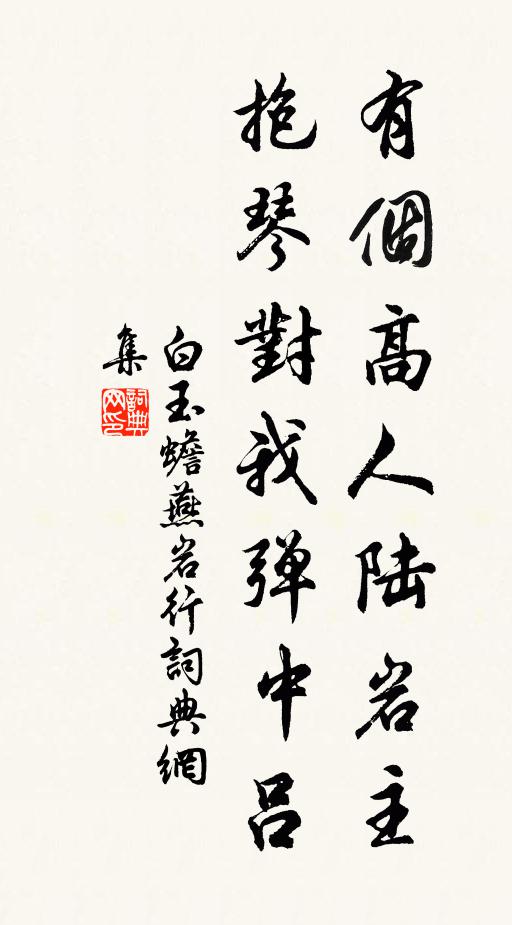 有個高人陆岩主
抱琴對我弹中吕
白玉蟾燕岩行詞典網
集
詞典
网印